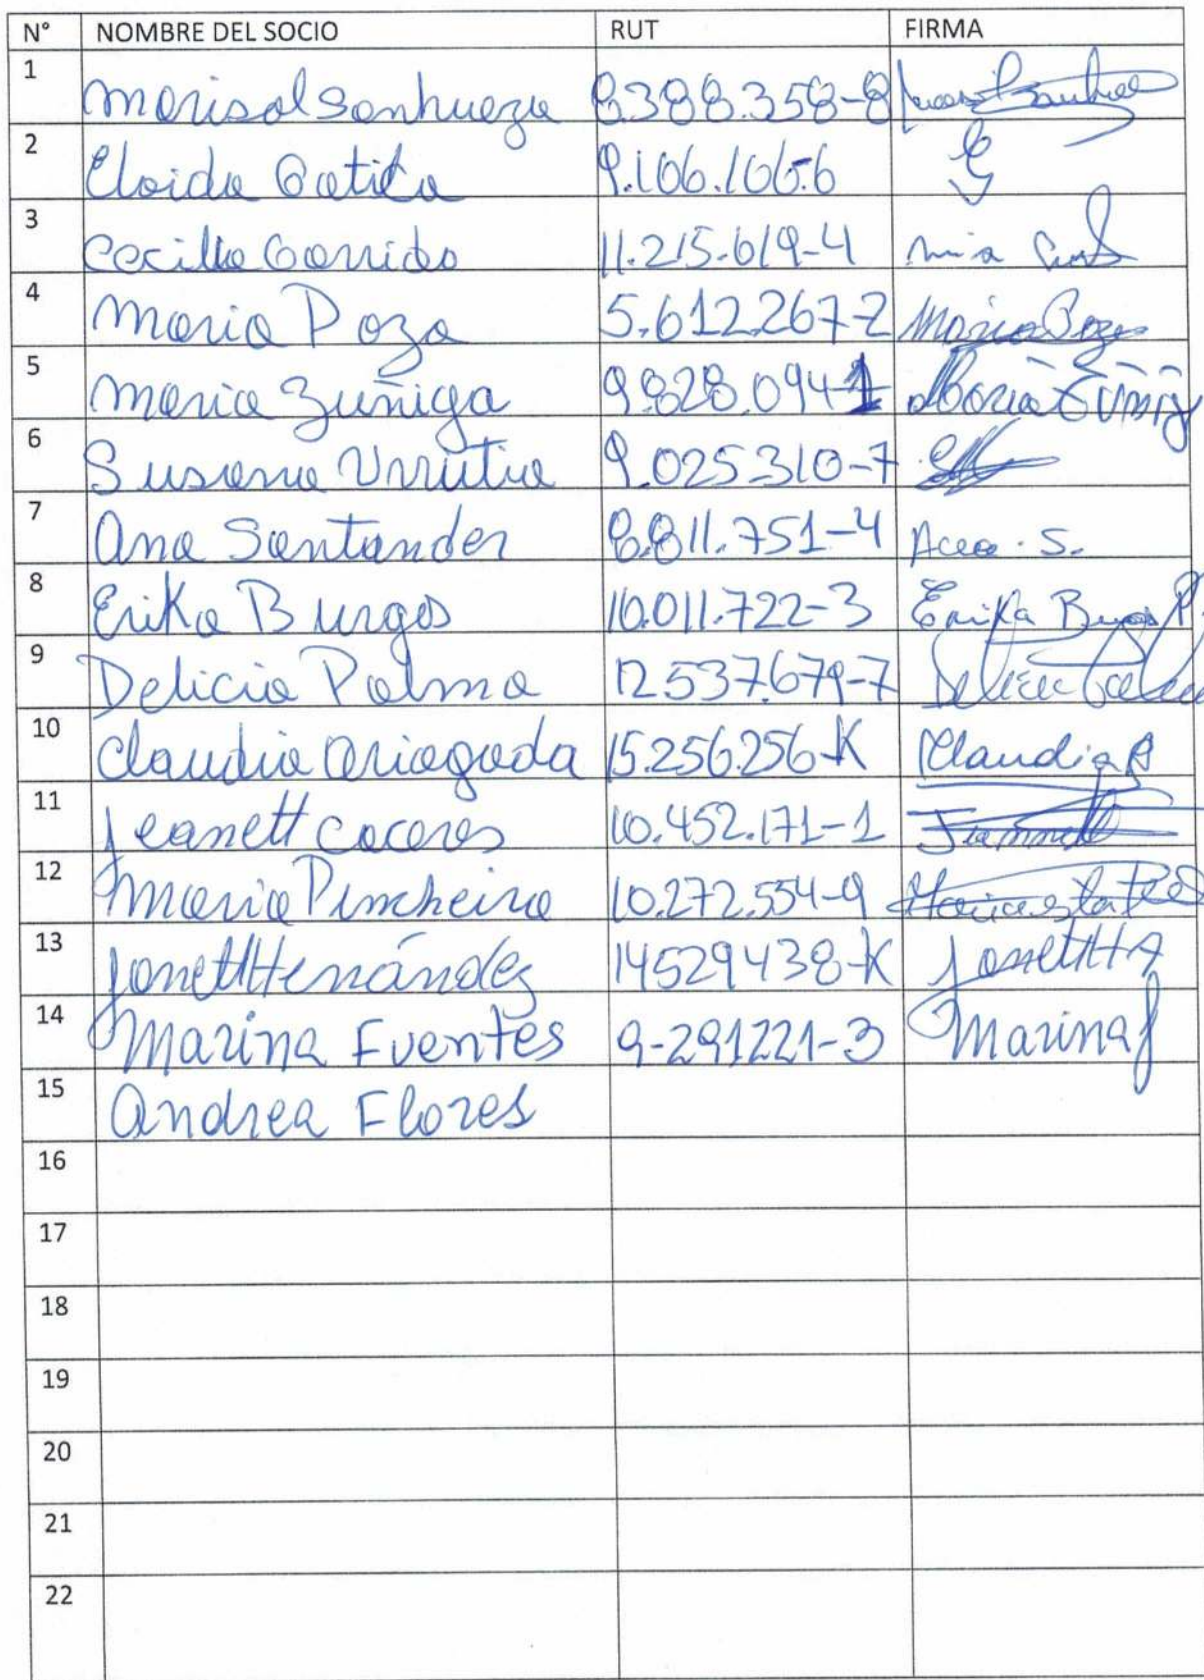 N° NOMBRE DEL SOCIO RUT FIRMA
1 Marisol Sanhueza 8.388.358-8
2 Eloida Gatica 9.106.106-6
3 Cecilia Garrido 11.215.619-4
4 Maria Poza 5.612.267-2 Maria Poza
5 Maria Zuñiga 9.828.094-1 Maria Zuñig
6 Susana Urrutia 9.025310-7
7 Ana Santander 8.811.751-4 Ana. S.
8 Erika Burgos 10.011.722-3 Erika Burgos P.
9 Delicia Palma 12.537.679-7 Delicia Palma
10 Claudia Ariagada 15.256.256-K Claudia A
11 Jeanett Caceres 10.452.171-1
12 Maria Pincheira 10.272.554-9
13 Janett Henández 14529438-K Janett H A
14 Marina Fuentes 9-291221-3 Marina f
15 Andrea Flores
16
17
18
19
20
21
22